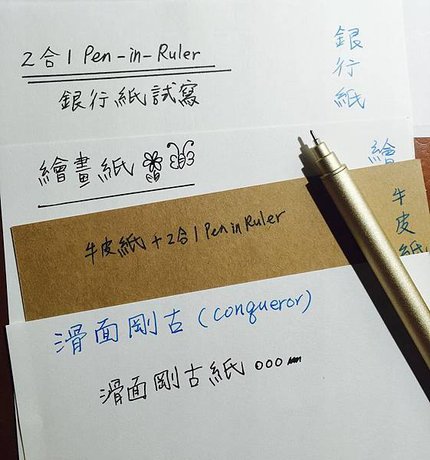 2合1 Pen-in-Ruler
銀行紙試寫
銀行紙
繪畫紙
繪
牛皮紙+2合1 Pen in Ruler
牛皮紙
滑面剛古(conqueror)
滑面剛古紙